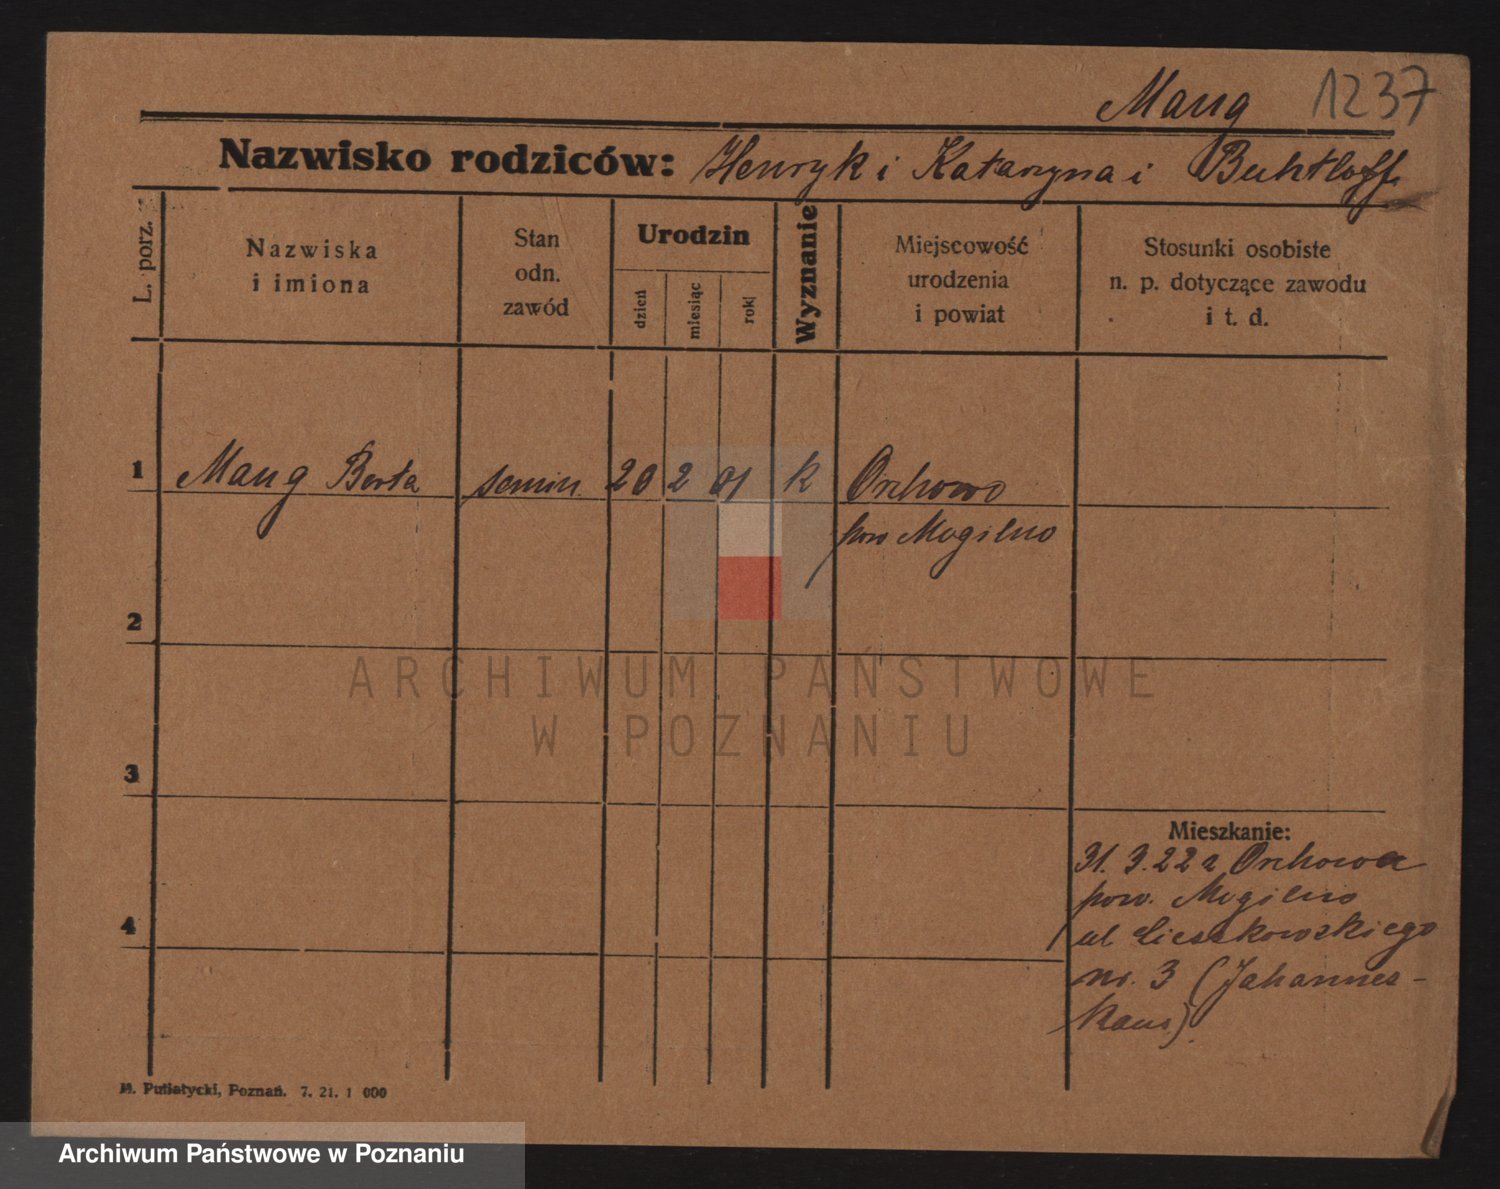 Maug 1237
Nazwisko rodziców: Henryk i Katarzyna i Buhtloff
L. porz.
Nazwiska
i imiona
Stan
odn.
zawód
Urodzin
dzień
miesiąc
rok
Wyznanie
Miejscowość
urodzenia
i powiat
Stosunki osobiste
n. p. dotyczące zawodu
i t. d.
1 Maug Berta semin. 20 2 01 k Orchowo
pow Mogilno
2
ARCHIWUM PAŃSTWOWE
W POZNANIU
3
Mieszkanie:
31. 3. 22 z Orchowa
pow. Mogilno
4
ul Cieszkowskiego
no. 3 (Johannes-
haus)
M. Putiatycki, Poznań. 7. 21. 1 000
Archiwum Państwowe w Poznaniu